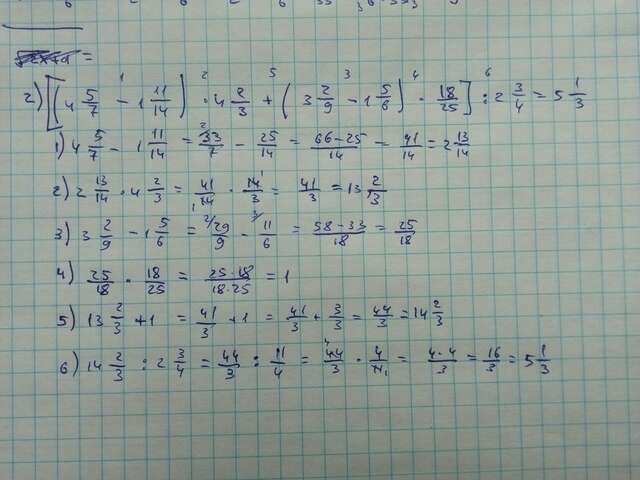 2) [(4 5/7 - 1 11/14) · 4 2/3 + (3 2/9 - 1 5/6) · 18/25] : 2 3/4 = 5 1/3
1) 4 5/7 - 1 11/14 = 33/7 - 25/14 = 66-25/14 = 41/14 = 2 13/14
2) 2 13/14 · 4 2/3 = 41/14 · 14/3 = 41/3 = 13 2/3
3) 3 2/9 - 1 5/6 = 29/9 - 11/6 = 58-33/18 = 25/18
4) 25/18 · 18/25 = 25·18/18·25 = 1
5) 13 2/3 + 1 = 41/3 + 1 = 41/3 + 3/3 = 44/3 = 14 2/3
6) 14 2/3 : 2 3/4 = 44/3 : 11/4 = 44/3 · 4/11 = 4·4/3 = 16/3 = 5 1/3